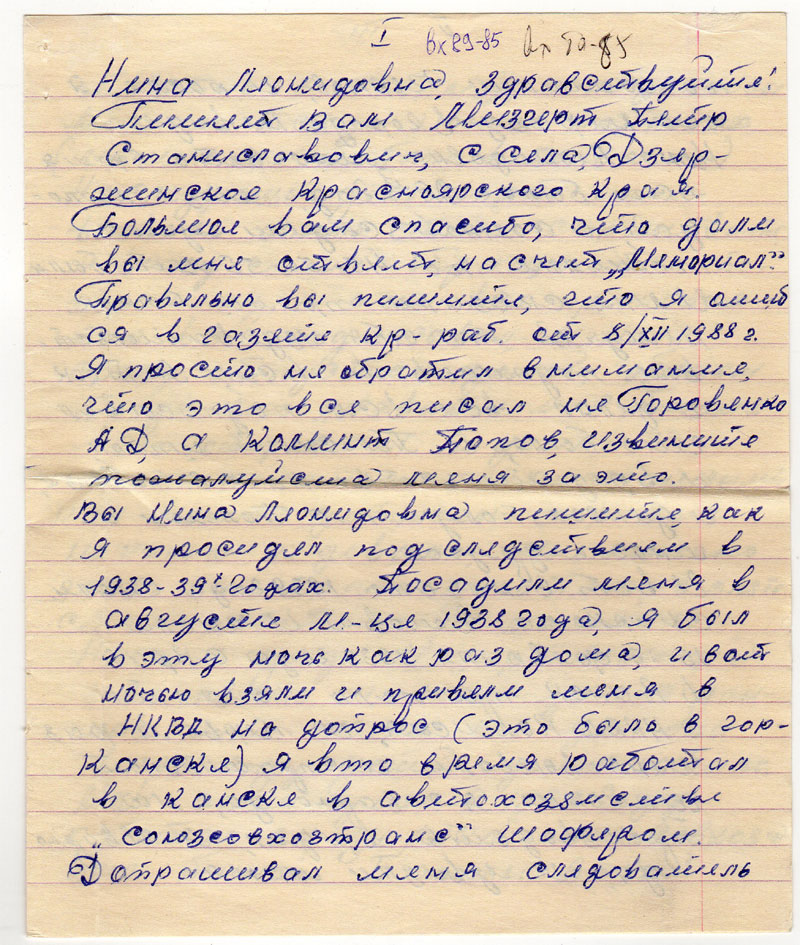 I Вх29-85
Нина Леонидовна, здравствуйте!
Пишет Вам Мейзгерт Петр
Станиславович, с села Дзер-
жинское Красноярского Края.
Большое вам спасибо, что дали
вы мне ответ, на счет „Мемориал".
Правельно вы пишите, что я ошиб
ся в газете Кр-раб. от 8/XII 1988 г.
Я просто не обратил внимание,
что это все писал не Горовенко
А.Д, а Комент Попов, извените
пожалуйста меня за это.
Вы Нина Леонидовна пишите, как
Я просидел под следствием в
1938-39х годах. Посадили меня в
августе м-це 1938 года, я был
в эту ночь как раз дома, и вот
ночью взяли и привели меня в
НКВД на допрос (это было в гор-
Канске) Я в то время работал
в канске в автохозяйстве
„союзсовхозтранс" шофером.
Допрашивал меня следователь